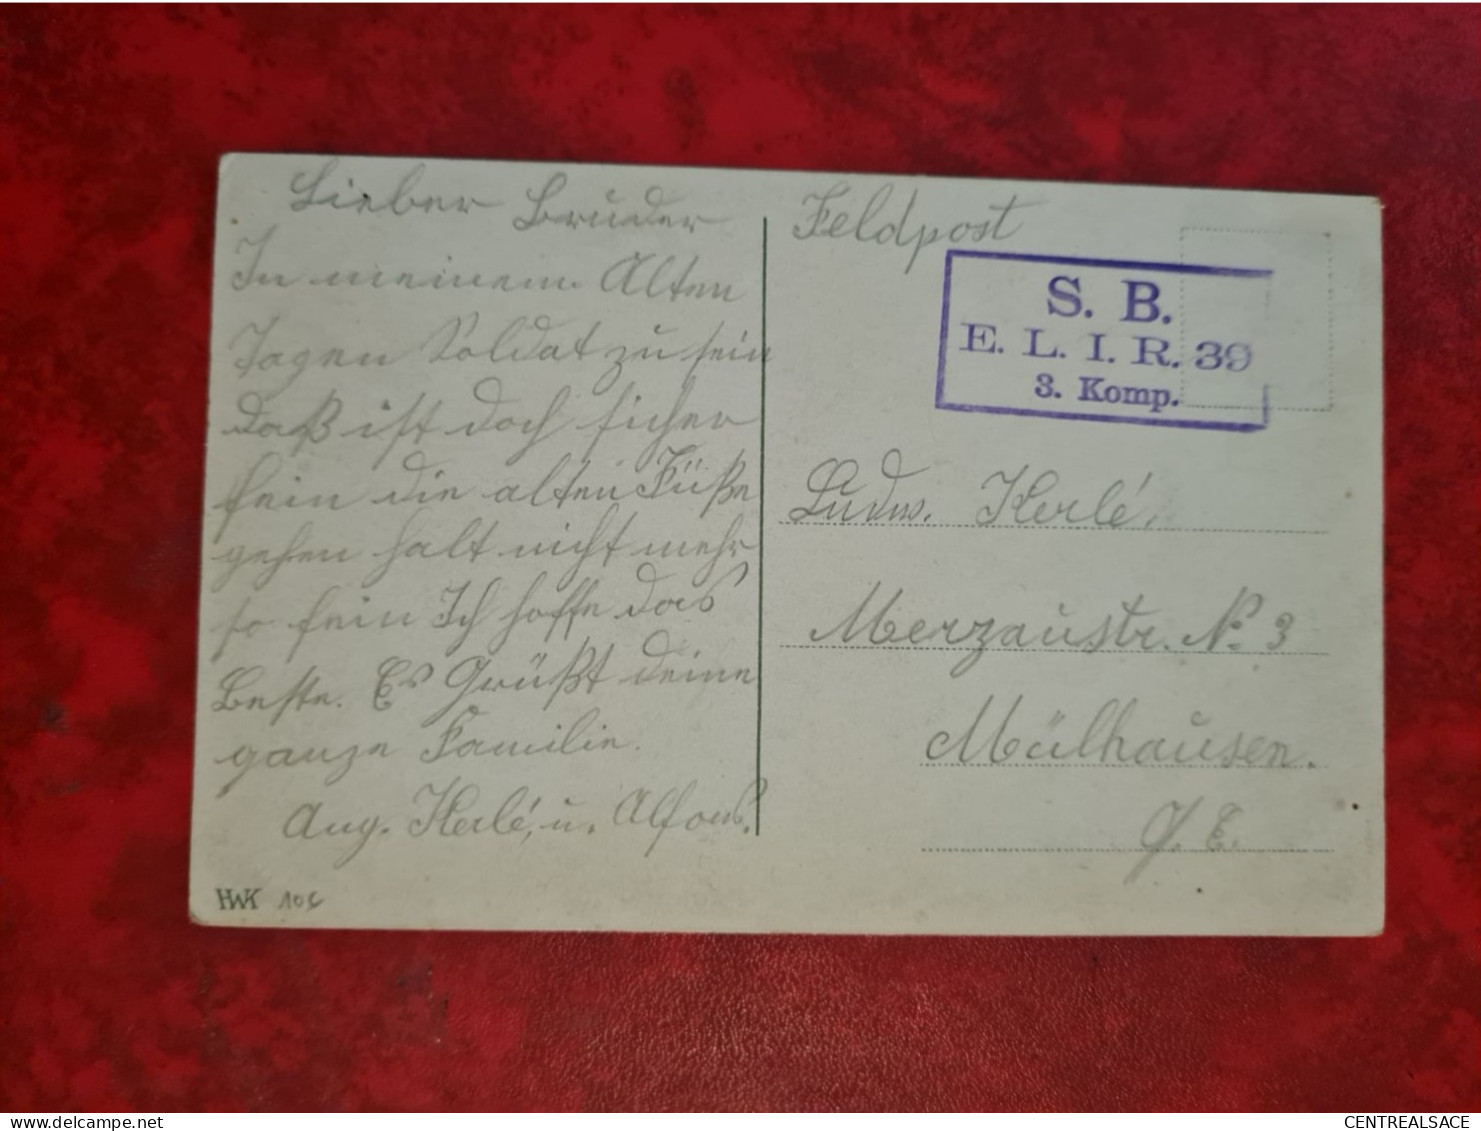 Lieber Bruder
In meinem Alten
Tagen Soldat zu sein
daß ist doch sicher
fein die alten Füße
gehen halt nicht mehr
so fein Ich hoffe das
Beste. Es Grüßt deine
ganze Familie.
Aug. Kerlé, u. Alfons.
HWK 10c
Feldpost
S. B.
E. L. I. R. 39
3. Komp.
Ludw. Kerlé,
Merzaustr. No 3
Mülhausen.
i. E.
delcampe.net
CENTREALSACE